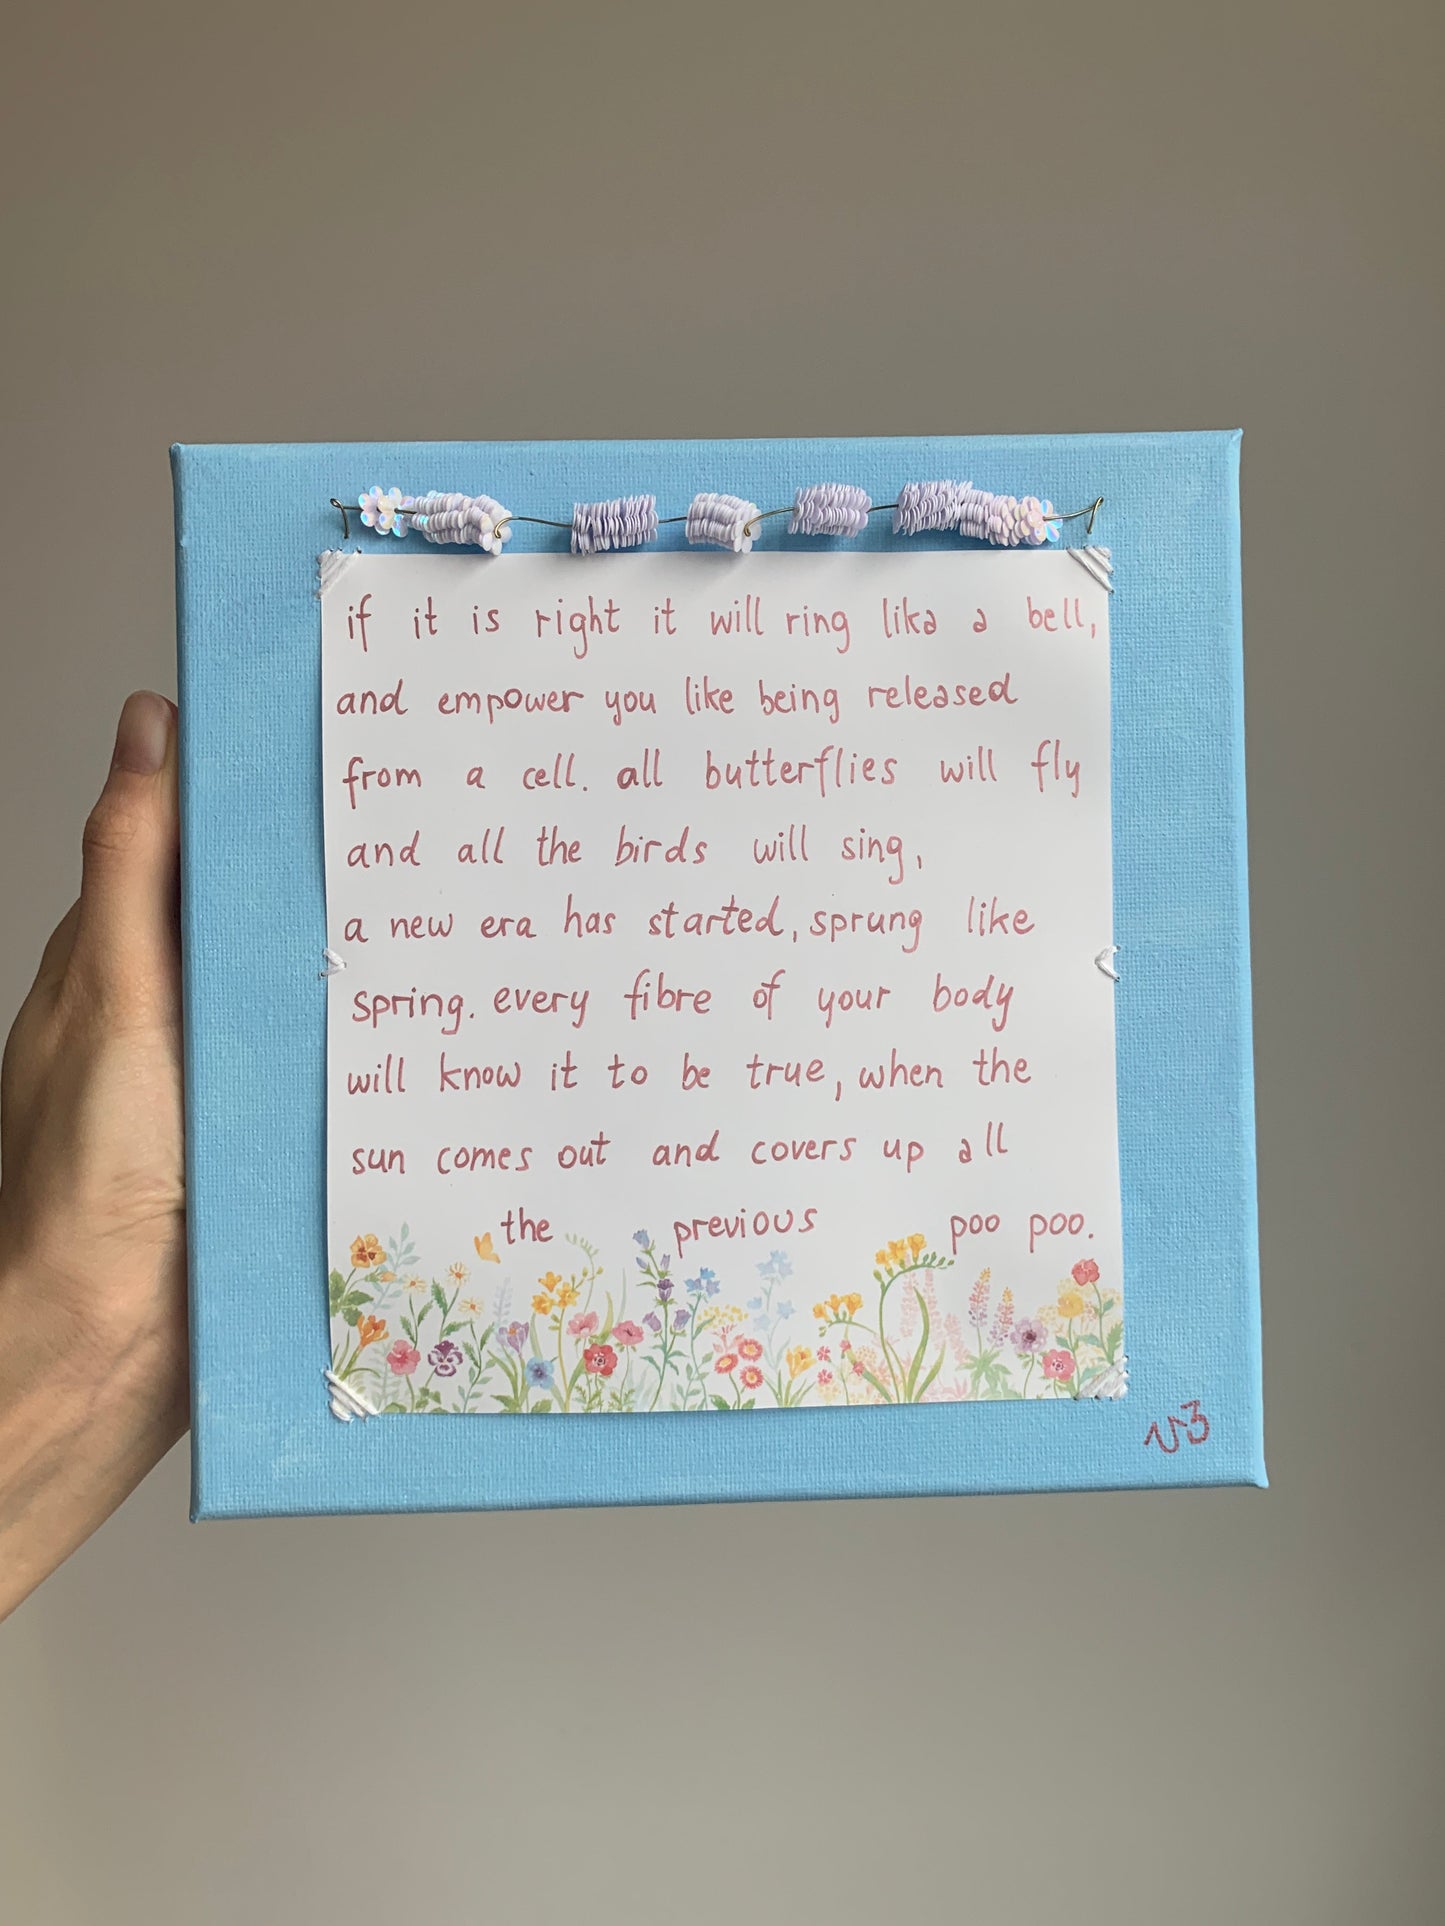 if it is right it will ring like a bell,
and empower you like being released
from a cell. all butterflies will fly
and all the birds will sing,
a new era has started, sprung like
spring. every fibre of your body
will know it to be true, when the
sun comes out and covers up all
the previous poo poo.